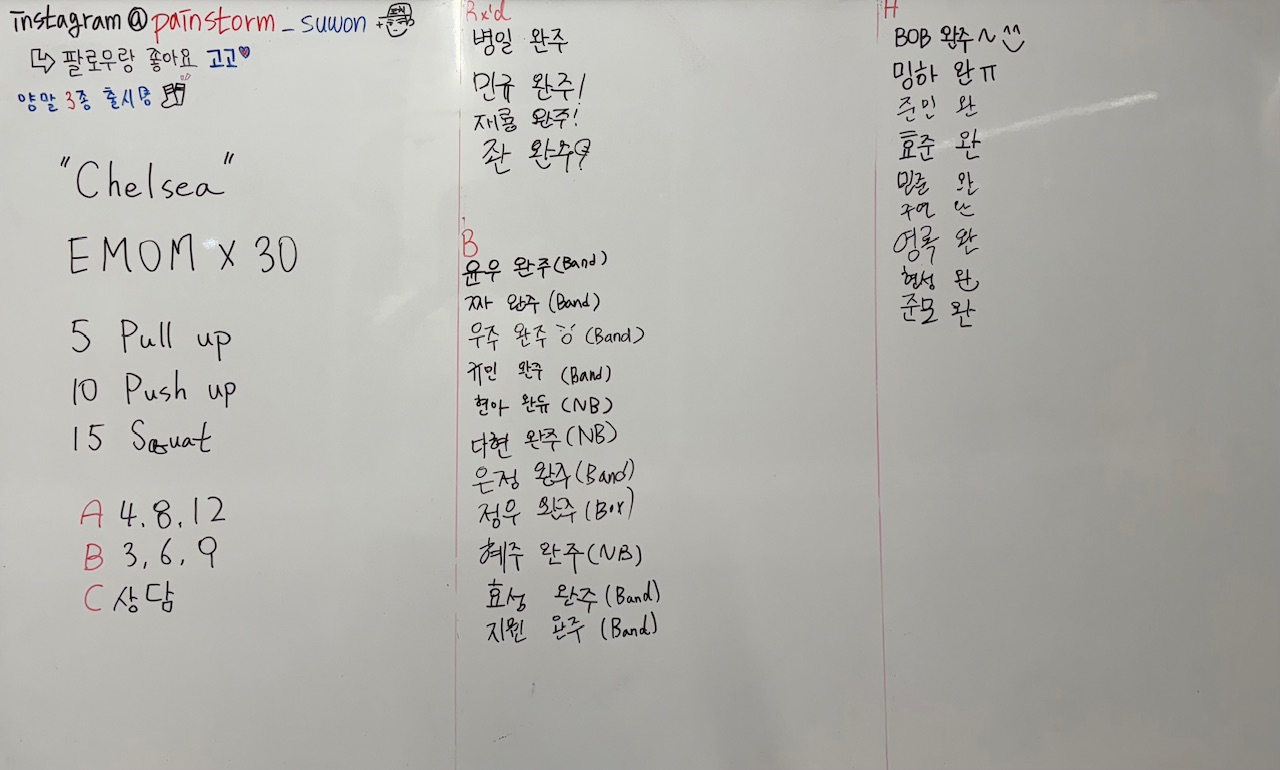 instagram@painstorm_suwon
↳ 팔로우랑 좋아요 고고♥
양말 3종 출시중
"Chelsea"
EMOM X 30
5 Pull up
10 Push up
15 Squat
A 4, 8, 12
B 3, 6, 9
C 상담
Rx'd
병일 완주
민규 완주!
재룡 완주!
좐 완주?
B
윤우 완주(Band)
짜 완주(Band)
우주 완주 (Band)
규민 완주 (Band)
현아 완듀 (NB)
다현 완주(NB)
은정 완주(Band)
정우 완주(Box)
혜주 완주(NB)
효성 완주(Band)
지원 완주 (Band)
A
BOB 완주~^^
밍하 완ㅠ
준민 완
효준 완
민준 완
주연 완
영록 완
현성 완
준모 완